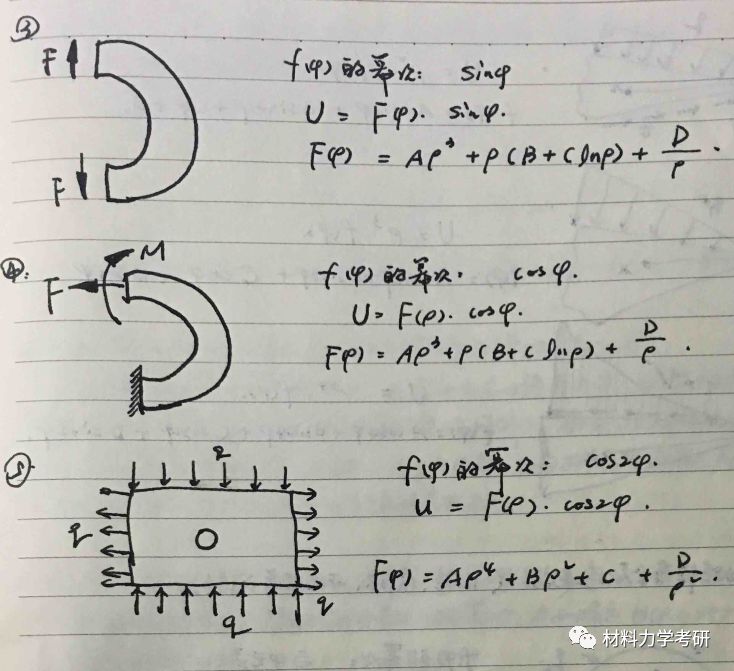 ③
F
F
f(φ)的幂次: sinφ
U = F(ρ)· sinφ.
F(ρ) = Aρ³ + ρ(B + C lnρ) + D/ρ .
④.
M
F
f(φ)的幂次. cosφ.
U = F(ρ)· cosφ.
F(ρ) = Aρ³ + ρ(B + C lnρ) + D/ρ .
⑤.
q
q
q
q
f(φ)的幂次: cos2φ.
U = F(ρ)· cos2φ.
F(ρ) = Aρ⁴ + Bρ² + C + D/ρ² .
材料力学考研